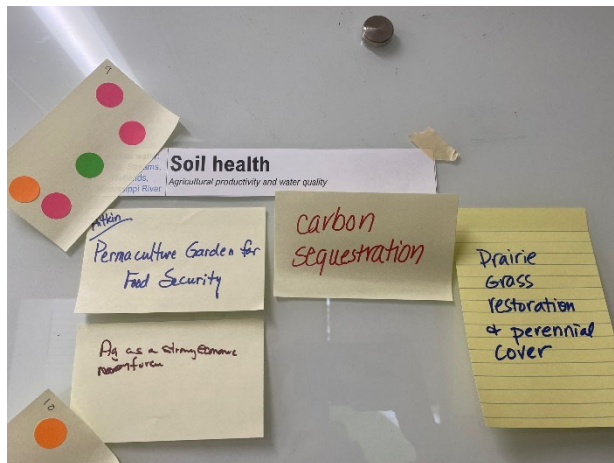 9
Soil health
Agricultural productivity and water quality
River
Aitkin
Permaculture Garden for
Food Security
carbon
sequestration
Prairie
Grass
restoration
& perennial
cover
Ag as a strong economic
10